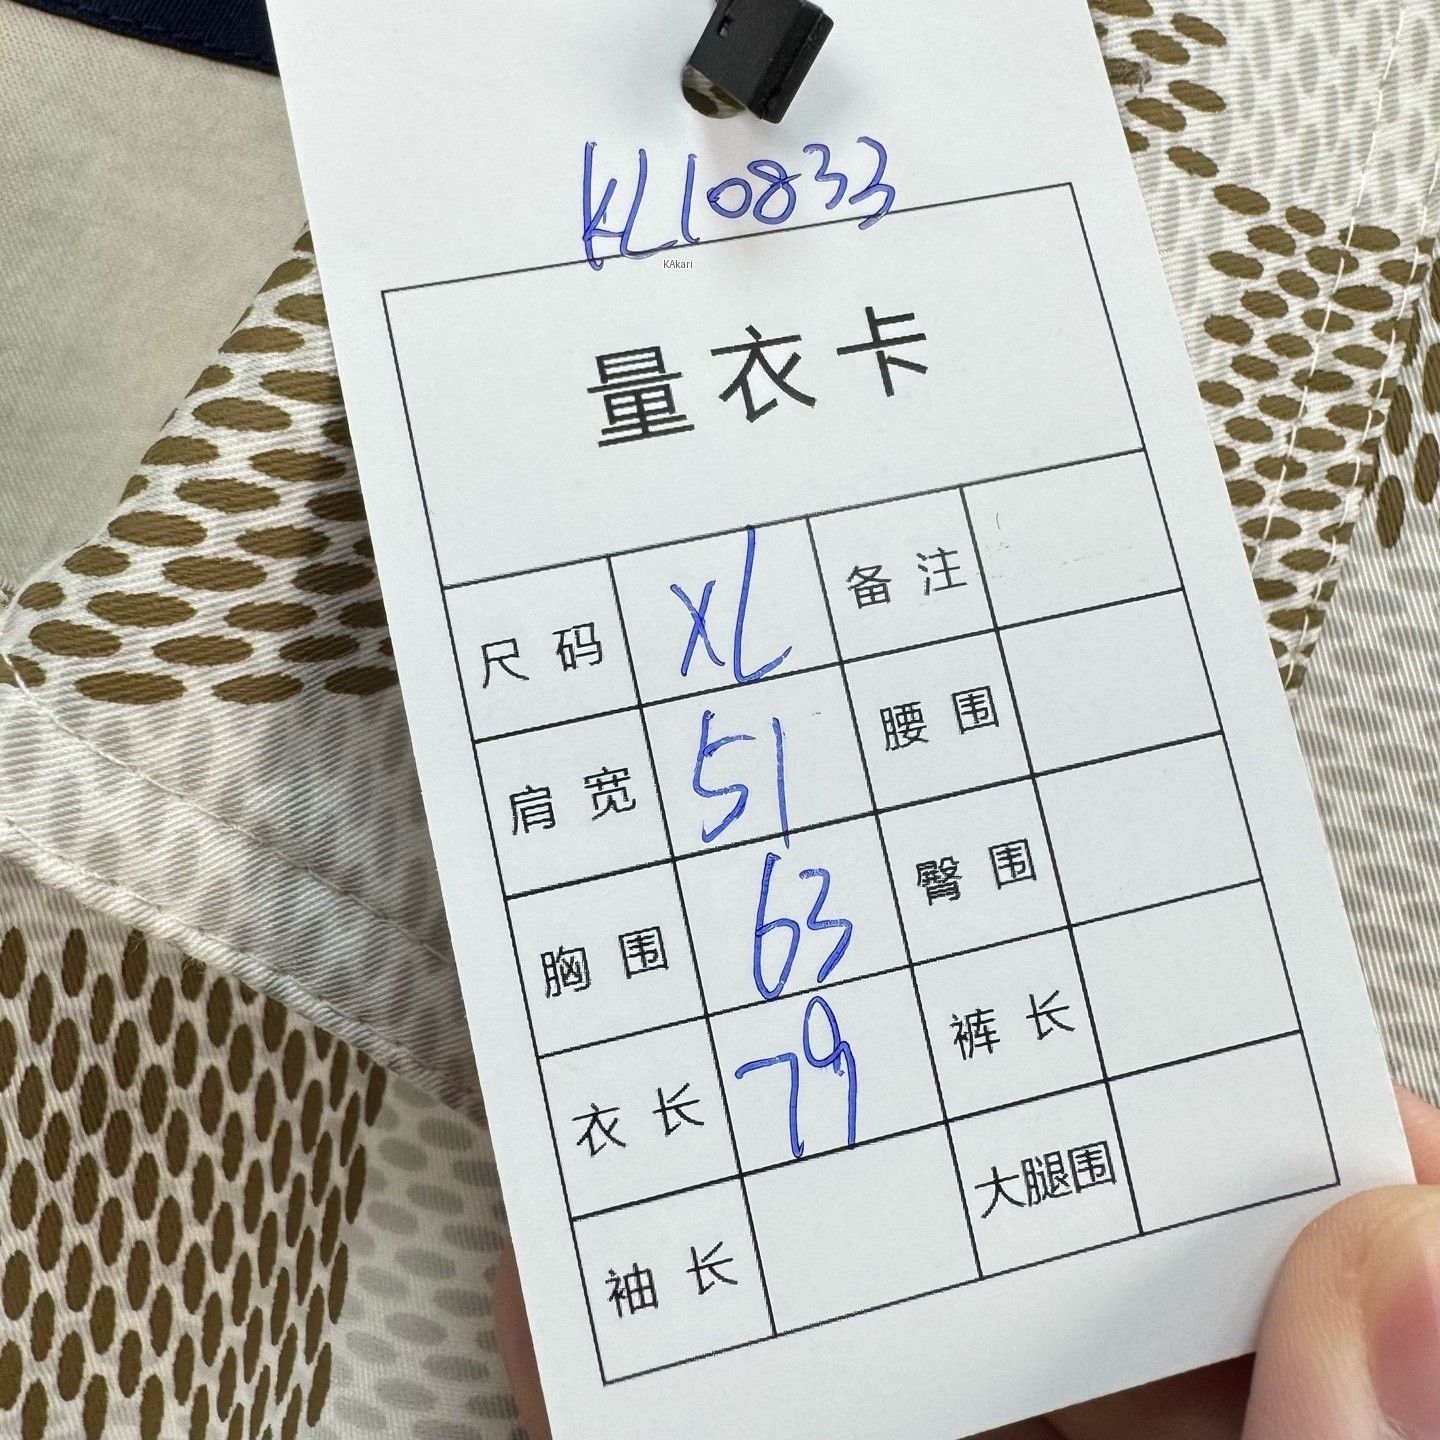 KL10833
KAkari
量衣卡
尺码 XL 备注
肩宽 51 腰围
胸围 63 臀围
衣长 79 裤长
袖长 大腿围